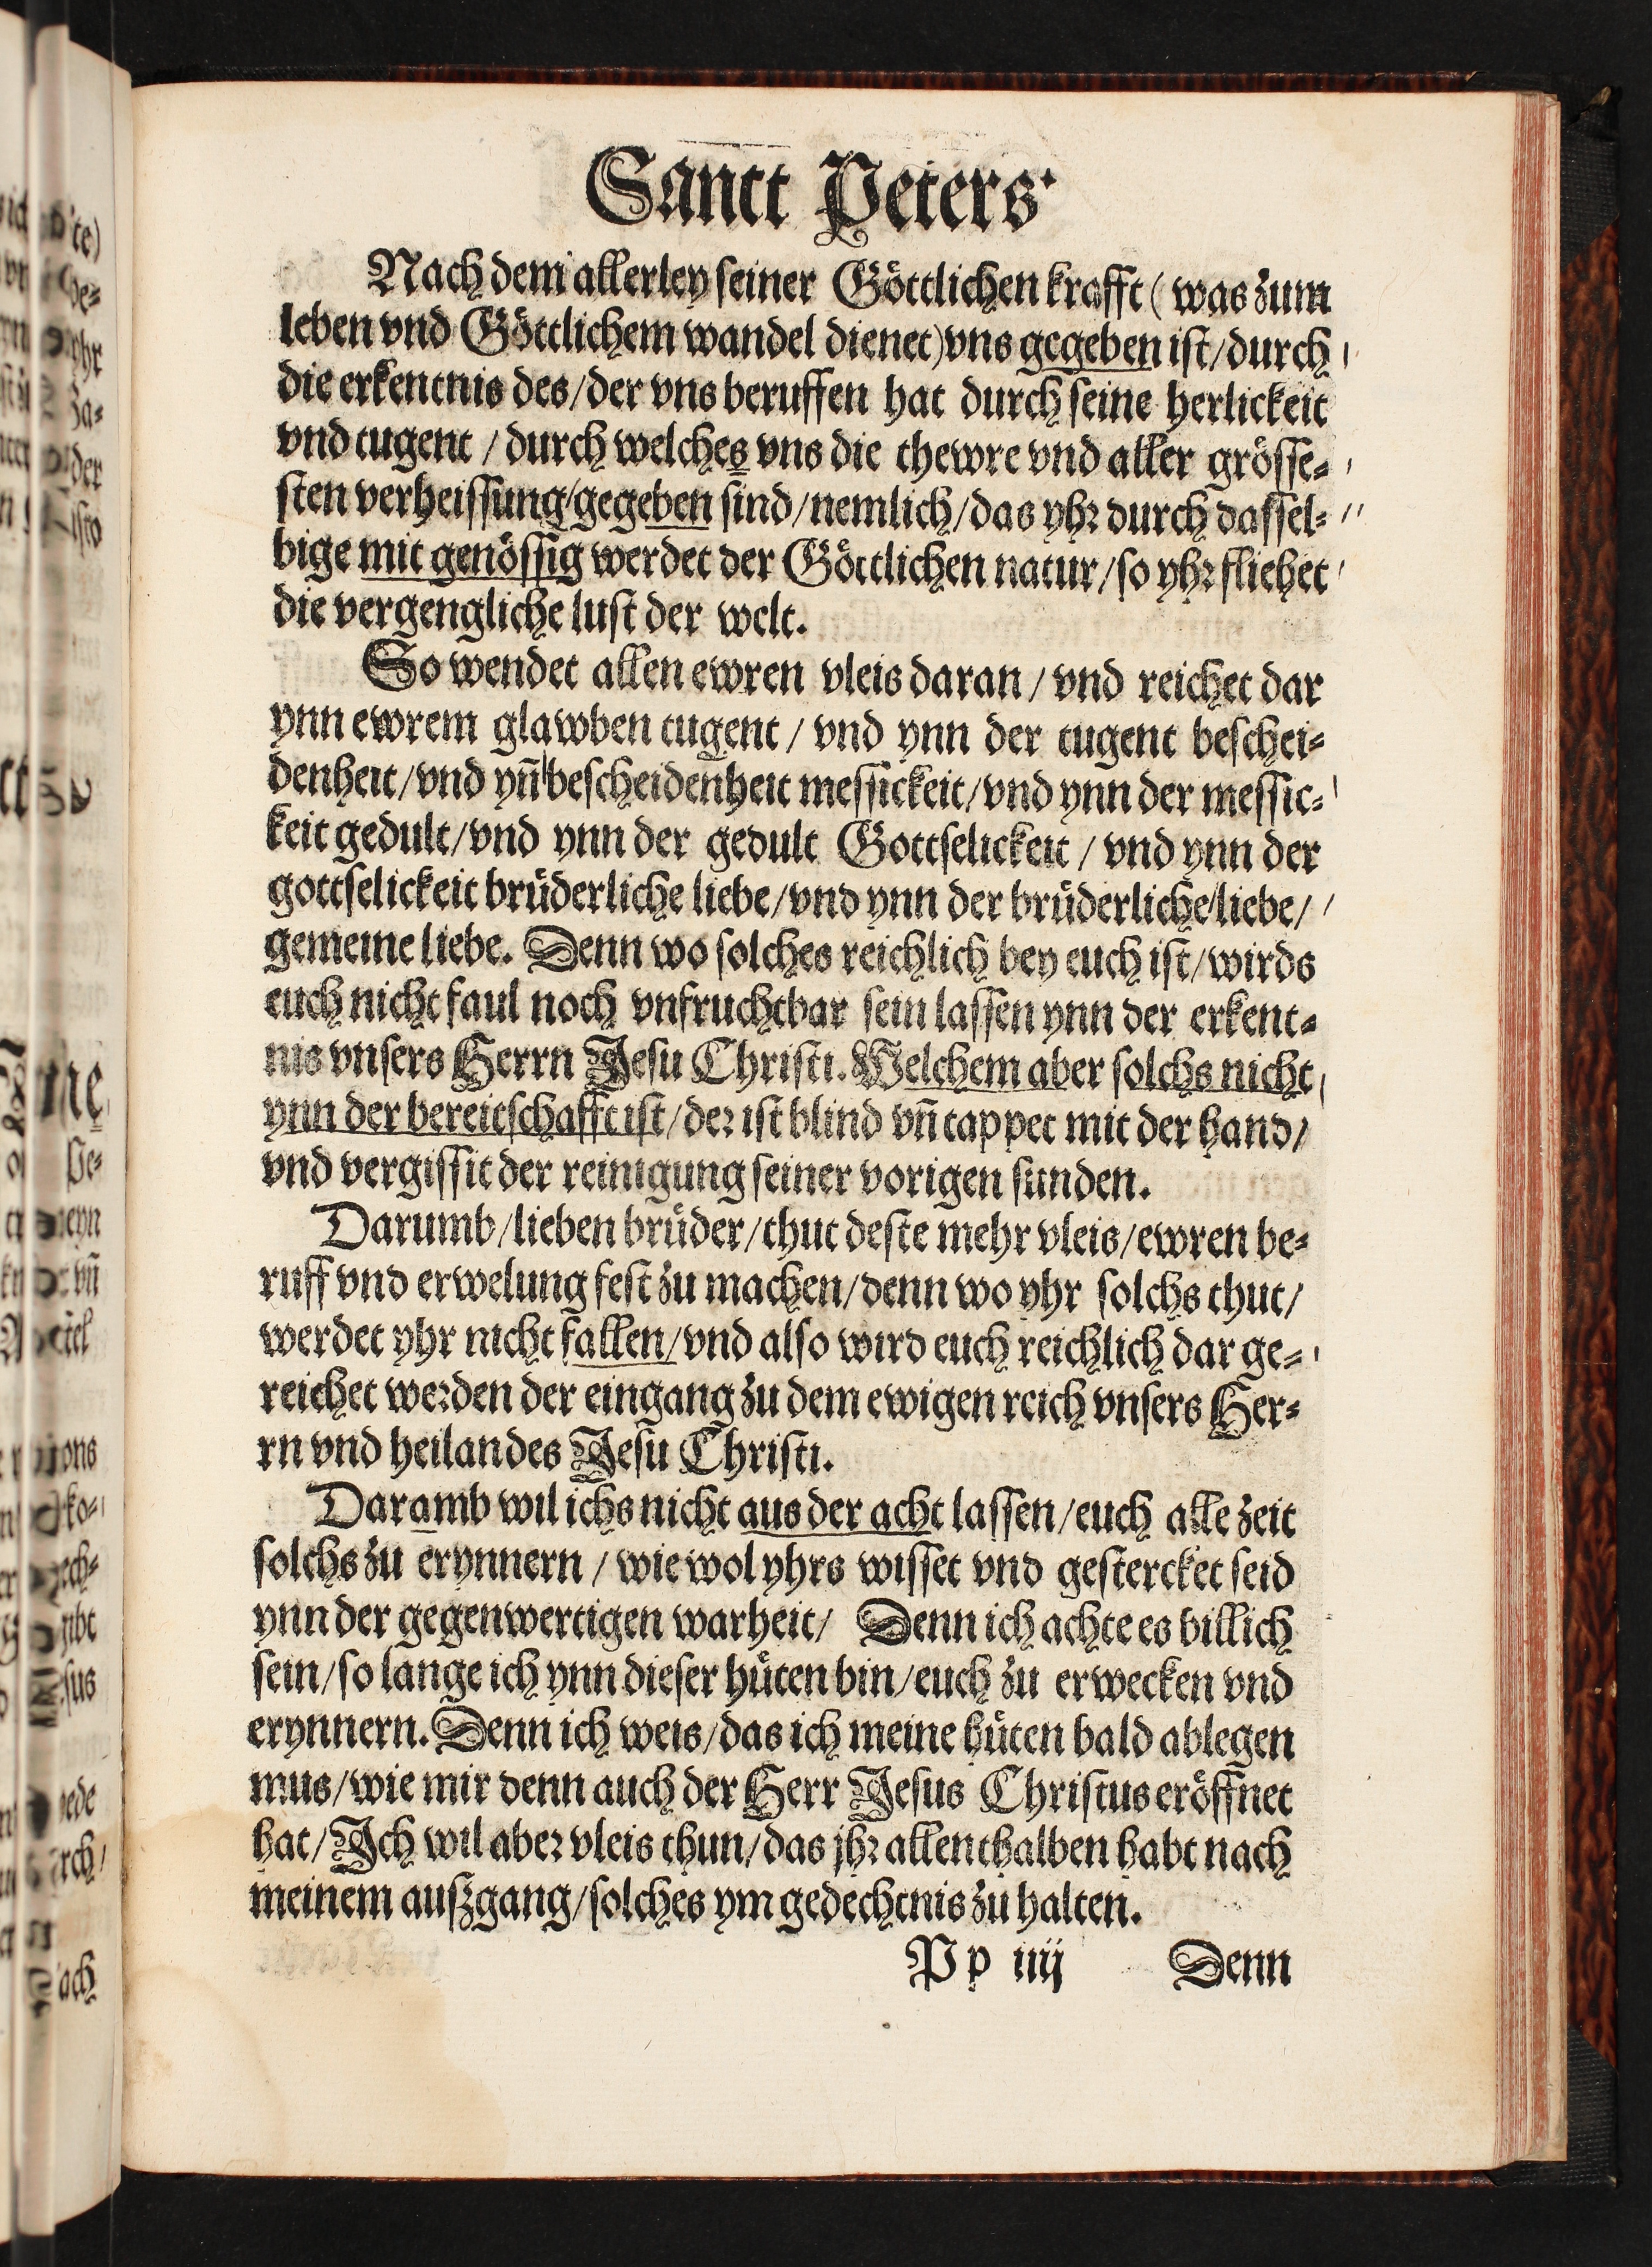 Sanct Peters
Nach dem allerley seiner Göttlichen krafft (was zum
leben vnd Göttlichem wandel dienet) vns gegeben ist/durch
die erkentnis des/der vns beruffen hat durch seine herlickeit
vnd tugent / durch welches vns die thewre vnd aller grösse-
sten verheissung/gegeben sind/nemlich/das yhr durch dassel-
bige mit genössig werdet der Göttlichen natur/so yhr fliehet
die vergengliche lust der welt.
So wendet allen ewren vleis daran / vnd reichet dar
ynn ewrem glawben tugent / vnd ynn der tugent beschei-
denheit/vnd yñ bescheidenheit messickeit/vnd ynn der messic-
keit gedult/vnd ynn der gedult Gottselickeit / vnd ynn der
gottselickeit brüderliche liebe/vnd ynn der brüderliche liebe/
gemeine liebe. Denn wo solches reichlich bey euch ist/wirds
euch nicht faul noch vnfruchtbar sein lassen ynn der erkent-
nis vnsers Herrn Jesu Christi. Welchem aber solchs nicht
ynn der bereitschafft ist/der ist blind vñ tappet mit der hand/
vnd vergissit der reinigung seiner vorigen sunden.
Darumb/lieben brüder/thut deste mehr vleis/ewren be-
ruff vnd erwelung fest zu machen/denn wo yhr solchs thut/
werdet yhr nicht fallen/vnd also wird euch reichlich dar ge-
reichet werden der eingang zu dem ewigen reich vnsers Her-
rn vnd heilandes Jesu Christi.
Daramb wil ichs nicht aus der acht lassen/euch alle zeit
solchs zu erynnern / wie wol yhrs wisset vnd gestercket seid
ynn der gegenwertigen warheit/ Denn ich achte es billich
sein/so lange ich ynn dieser hüten bin/euch zu erwecken vnd
erynnern. Denn ich weis/das ich meine hüten bald ablegen
mus/wie mir denn auch der Herr Jesus Christus eröffnet
hat/Ich wil aber vleis thun/das jhr allenthalben habt nach
meinem auszgang/solches ym gedechtnis zu halten.
P p iiij Denn